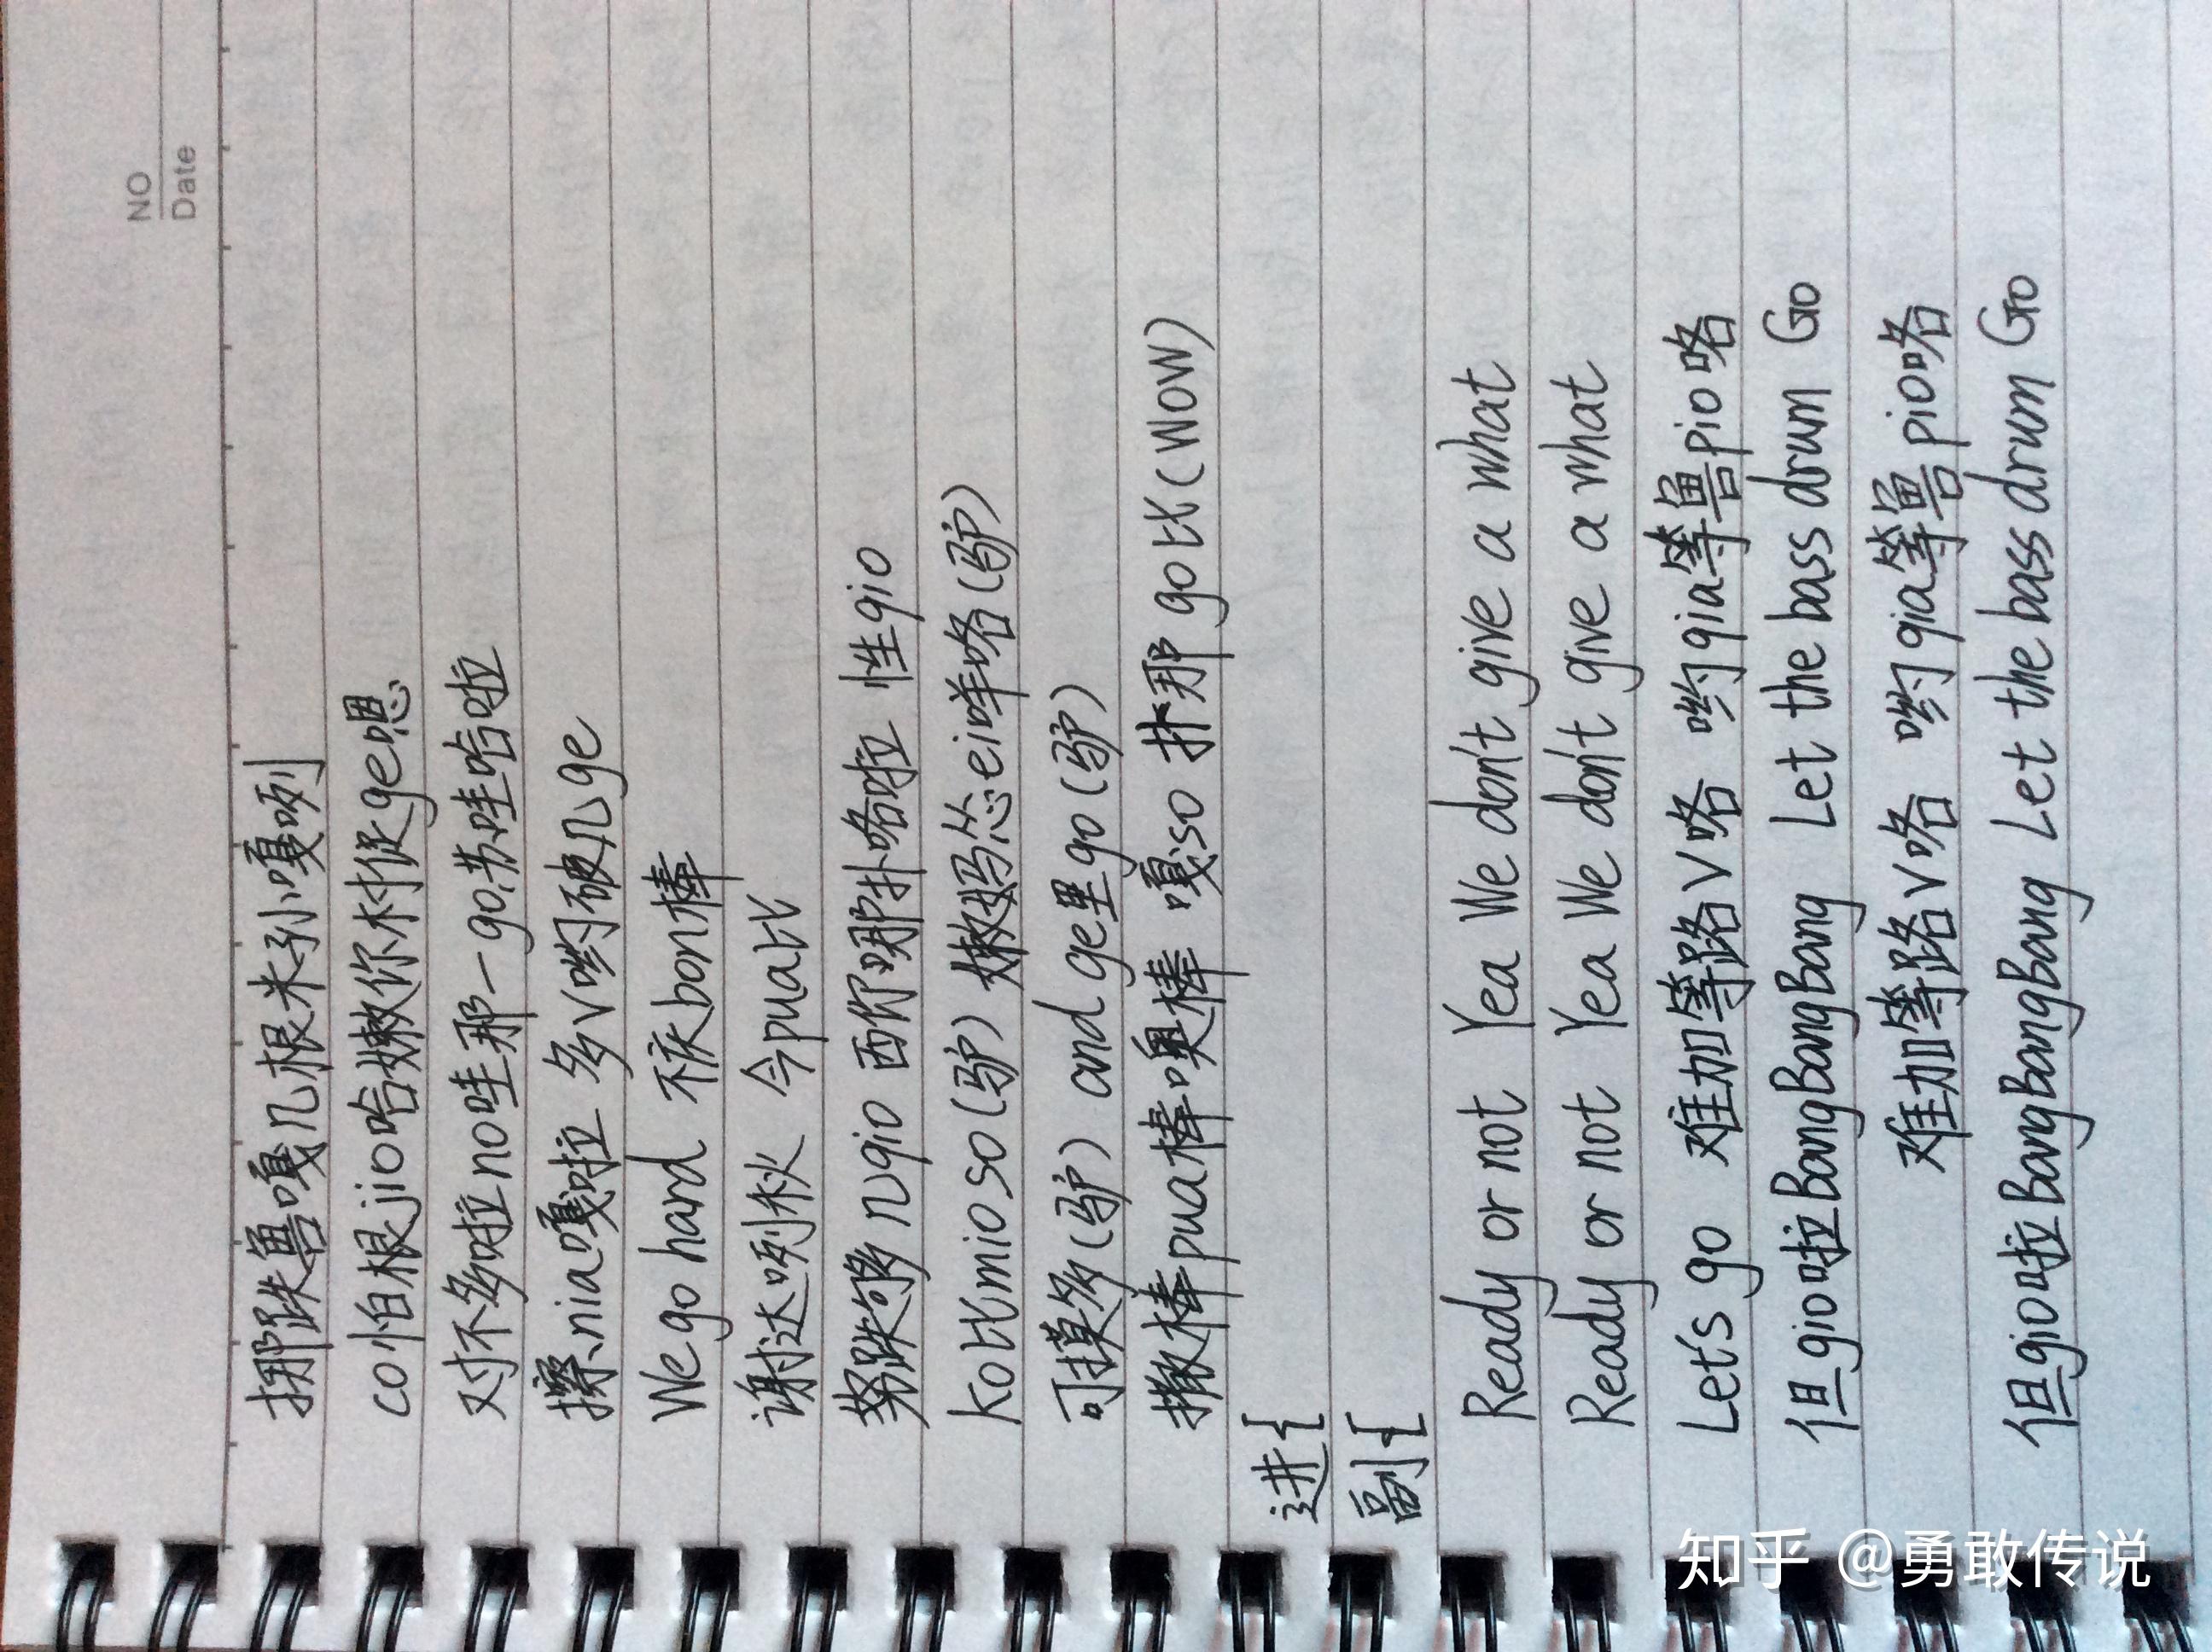 NO
Date
挪跌鲁嘎几根米孙嘎咧
co怕根jio哈嫩你村促ge嗯
对不多啦no哇那一go.苏哇哈啦
擦.nia嘎啦 多v哟破几ge
We go hard 不灰bon棒
谢达咧秋 今pua比
努跌够几gio 西你嘚那扑咯啦 性gio
ko比mio so(驴) 嫩妈怂ei咩咯(驴)
可摸多(驴) and ge里go(驴)
撒棒pua棒噢棒 嘎so 扑那 go比(Wow)
进{
副{
Ready or not Yea We don't give a what
Ready or not Yea We don't give a what
Let's go 难加等路v咯 哟gia等鲁pio咯
但gio啦BangBangBang Let the bass drum Go
难加等路v咯 哟gia等鲁pio咯
但gio啦BangBangBang Let the bass drum Go
知乎 @勇敢传说